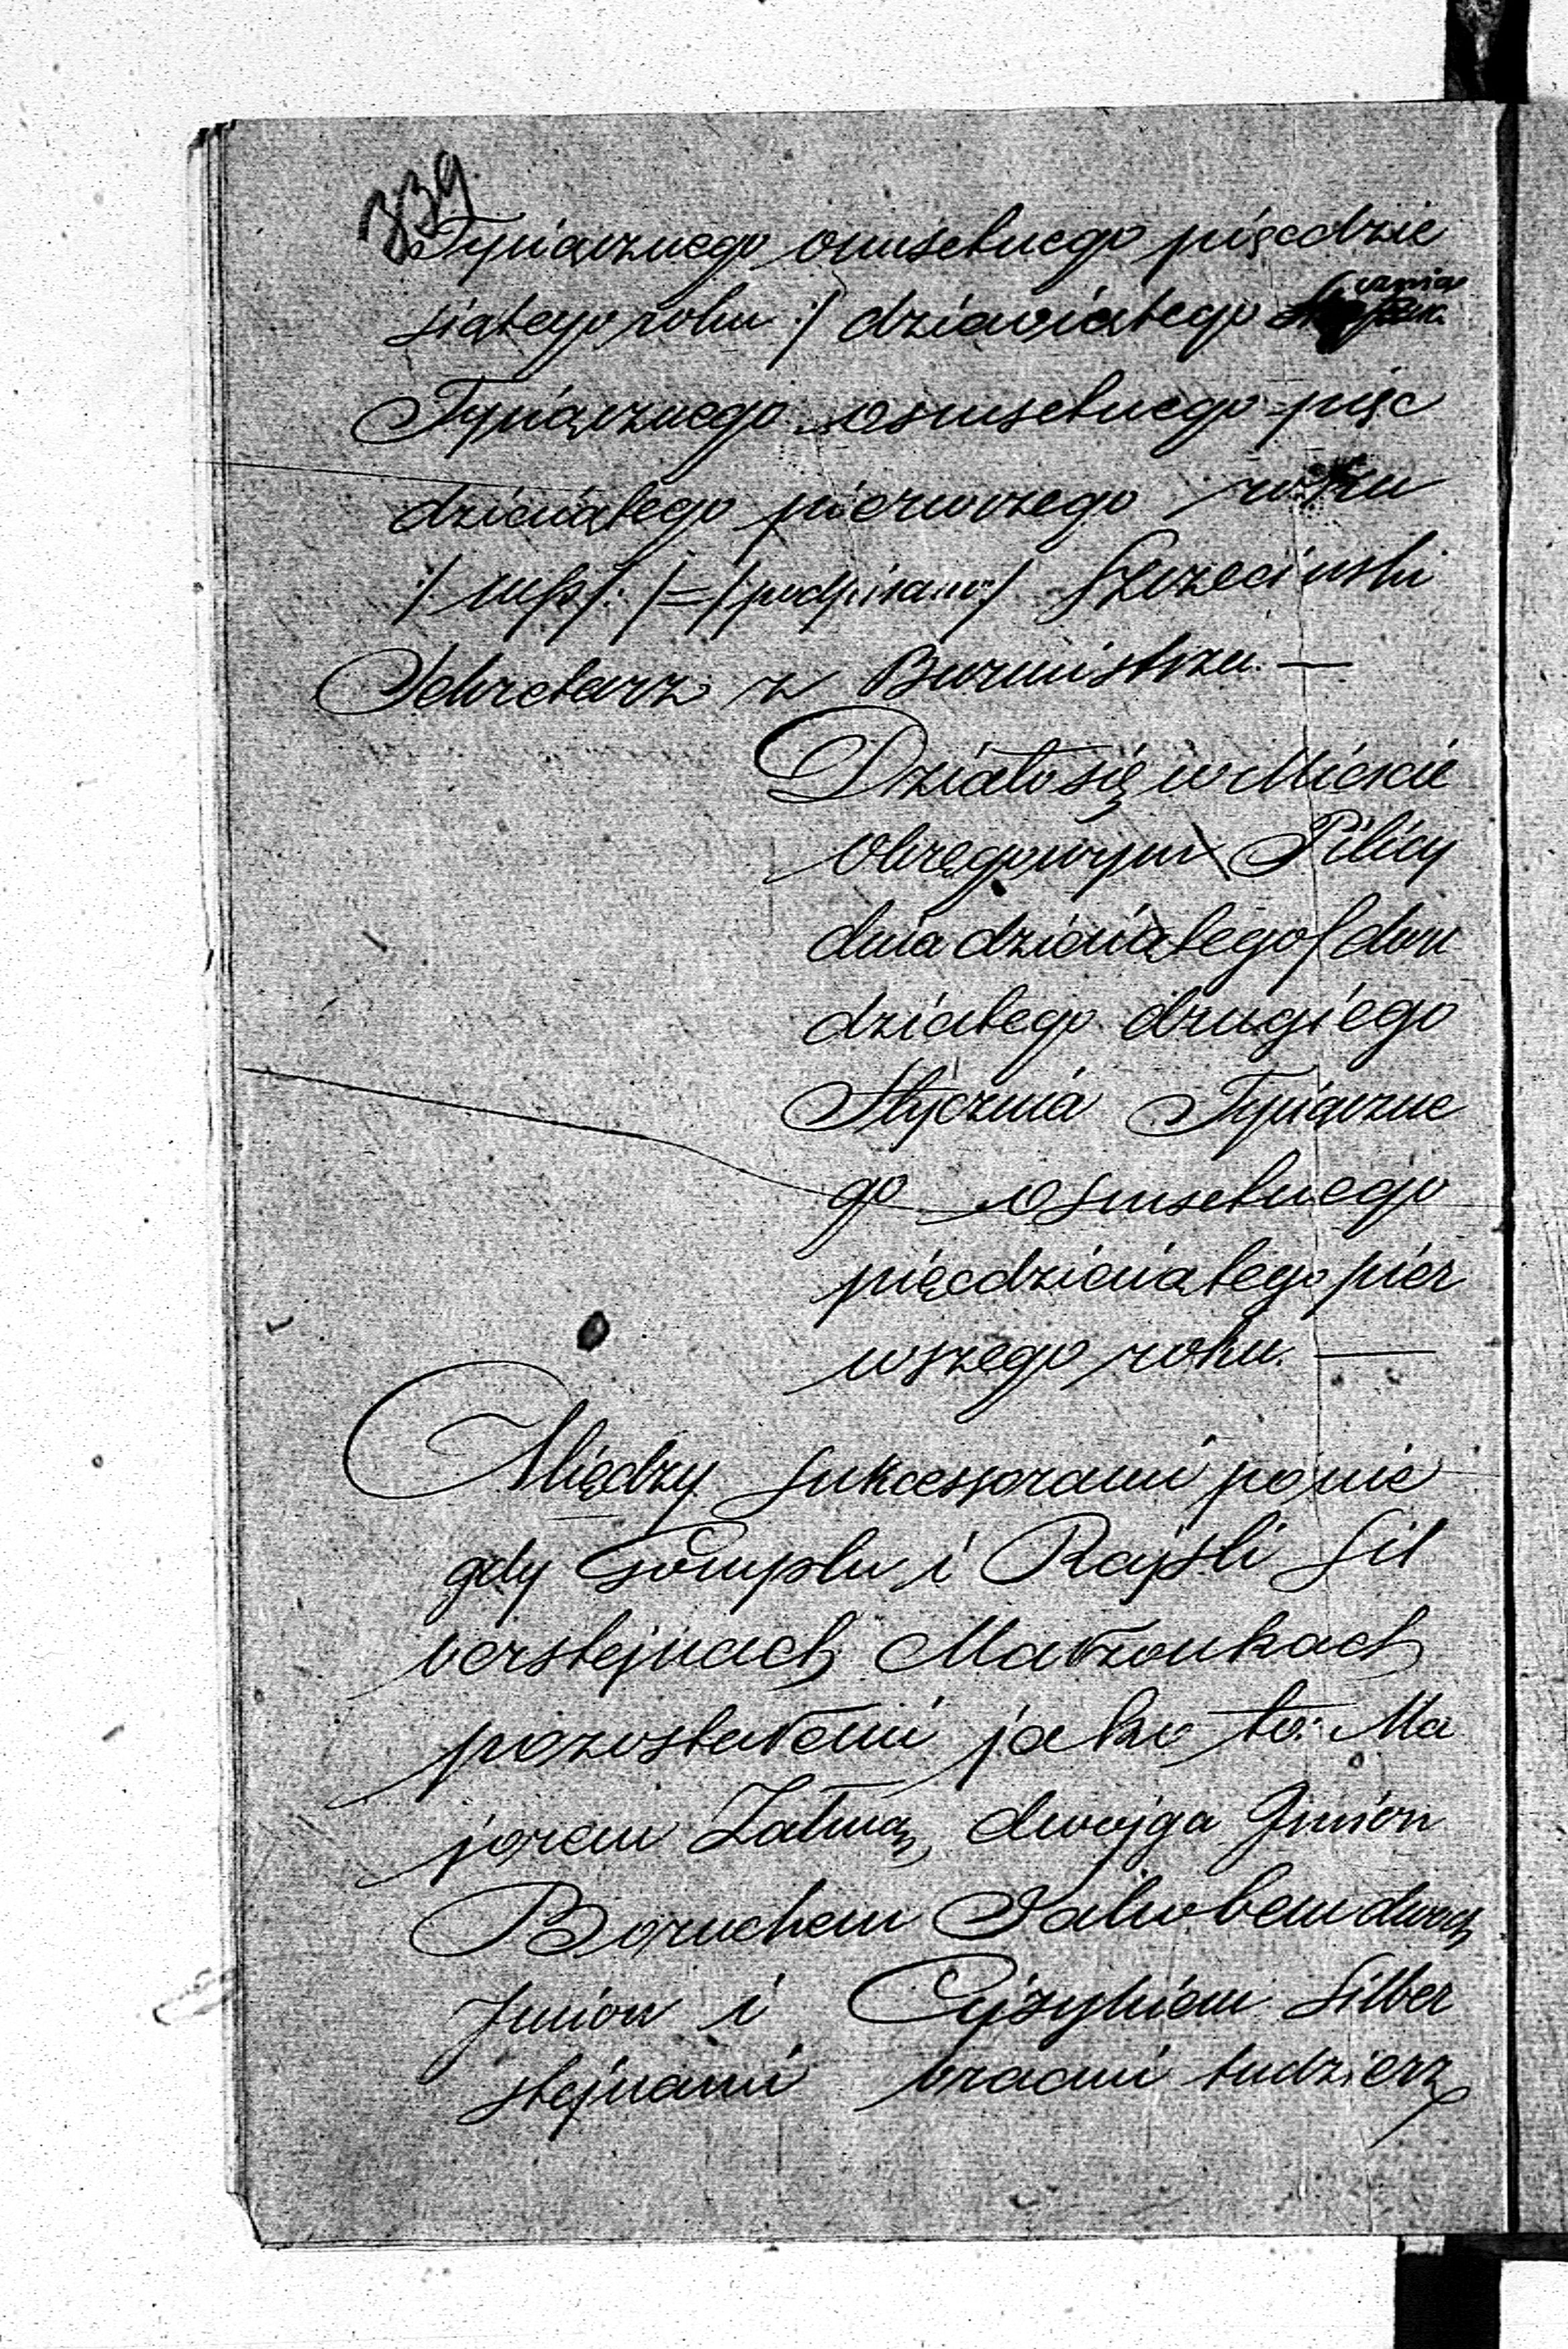 339
Tysiącznego ośmsetnego pięcdzie
siątego roku :/ dziewiątego
cznia
Tysiącznego osmsetnego pięc
dziesiątego pierwszego roku
:/ mp /: /=/ podpisano :/ Szczeciński
Sekretarz z Burmistrza. —
Działo się w Mieście
Okręgowym Pilicy
dnia dziesiątego / dwu
dziestego drugiego
Stycznia Tysiączne
go osmsetnego
pięcdziesiątego pier
wszego roku. —
Między Sukcessorami po nie
gdy i Rajsli Sil
berstejnach Małżonkach
pozostałemi jako to: Ma
jorem Zalmą dwojga Imion
Boruchem Jakobem dwoch
Imion i Silber
stejnami braćmi tudzierz